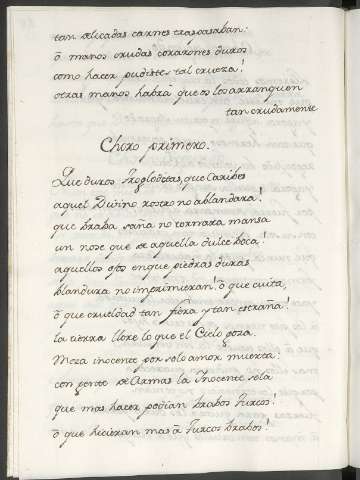 tan delicadas carnes traspasaban:
ô manos crudas corazones duros
como hacer pudistes tal crueza!
otras manos habrá que os los arranquen
tan crudamente
Choro primero.
Que duros Trogloditas, que Caribes
aquel Divino rostro no ablandara!
que braba saña no tornara mansa
un no se que de aquella dulce boca!
aquellos ojos en que piedras duras
blandura no imprimieran! ô que cuita,
ô que crueldad tan fiera y tan estraña!
la tierra llore lo que el Cielo goza.
Meza inocente por solo amor muerta:
con gente de Armas la Inocente sola
que mas hacer podian brabos Turcos!
ô que hicieran mas â Turcos brabos!